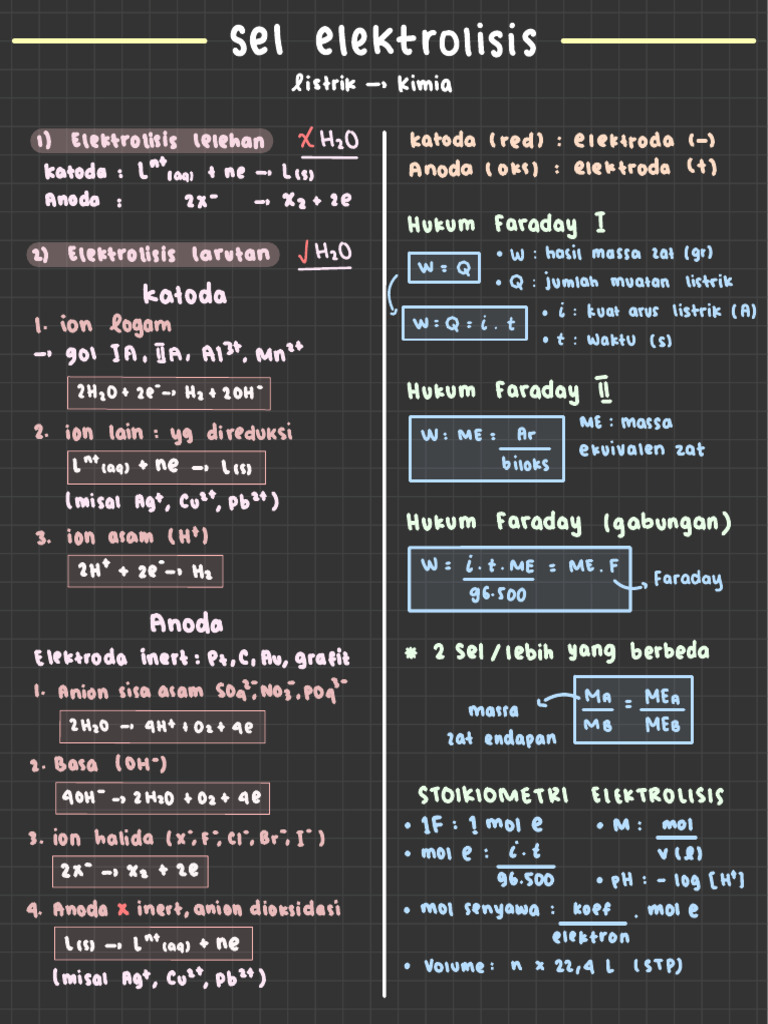 sel elektrolisis
listrik → kimia
1) Elektrolisis lelehan x H₂O
katoda : Lⁿ⁺(aq) + ne → L(s)
Anoda : 2x⁻ → x₂ + 2e
2) Elektrolisis larutan √ H₂O
katoda
1. ion logam
→ gol IA, IIA, Al³⁺, Mn²⁺
2H₂O + 2e⁻ → H₂ + 2OH⁻
2. ion lain : yg direduksi
Lⁿ⁺(aq) + ne → L(s)
(misal Ag⁺, Cu²⁺, Pb²⁺)
3. ion asam (H⁺)
2H⁺ + 2e⁻ → H₂
Anoda
Elektroda inert : Pt, C, Au, grafit
1. Anion sisa asam SO₄²⁻, NO₃⁻, PO₄³⁻
2H₂O → 4H⁺ + O₂ + 4e
2. Basa (OH⁻)
4OH⁻ → 2H₂O + O₂ + 4e
3. ion halida (x⁻, F⁻, Cl⁻, Br⁻, I⁻)
2x⁻ → x₂ + 2e
4. Anoda x inert, anion dioksidasi
L(s) → Lⁿ⁺(aq) + ne
(misal Ag⁺, Cu²⁺, Pb²⁺)
katoda (red) : elektroda (-)
Anoda (oks) : elektroda (+)
Hukum Faraday I
W = Q
• W : hasil massa zat (gr)
• Q : jumlah muatan listrik
W = Q = i . t
• i : kuat arus listrik (A)
• t : waktu (s)
Hukum Faraday II
W : ME = Ar
biloks
ME : massa
ekuivalen zat
Hukum Faraday (gabungan)
W = i . t . ME = ME . F
96.500
Faraday
* 2 sel/lebih yang berbeda
massa
zat endapan
MA = MEA
MB MEB
STOIKIOMETRI ELEKTROLISIS
• 1F : 1 mol e
• mol e : i . t
96.500
• M : mol
V (l)
• pH : - log [H⁺]
• mol senyawa : koef . mol e
elektron
• Volume : n x 22,4 L (STP)